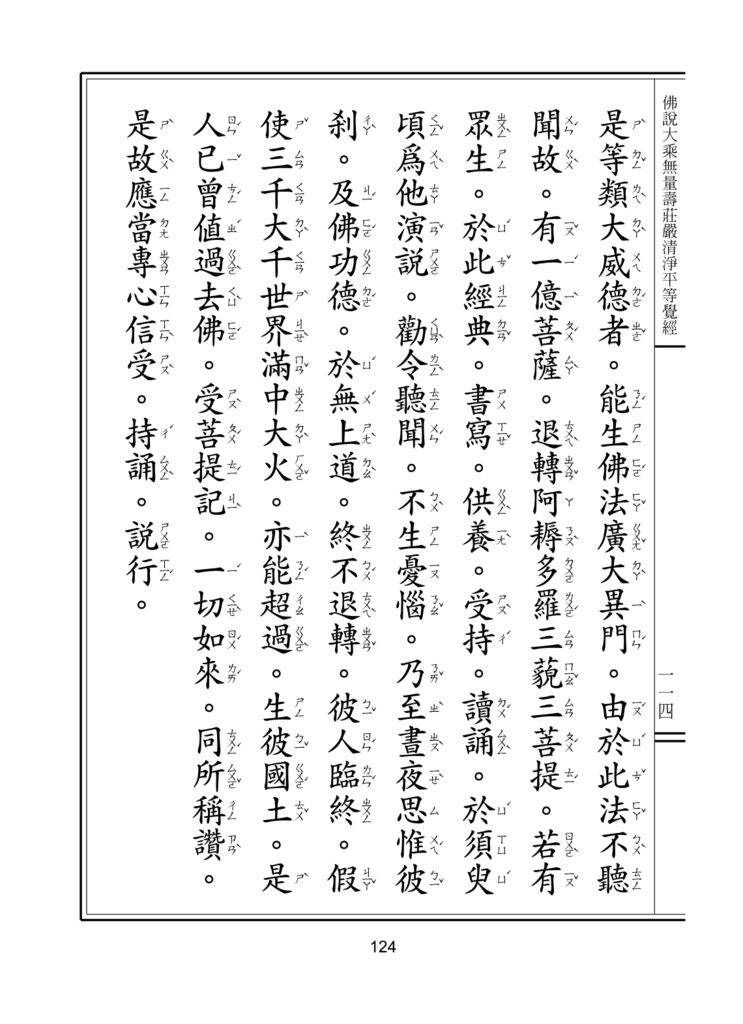 佛說大乘無量壽莊嚴清淨平等覺經
一一四
是等類大威德者。能生佛法廣大異門。由於此法不聽
聞故。有一億菩薩。退轉阿耨多羅三藐三菩提。若有
眾生。於此經典。書寫。供養。受持。讀誦。於須臾
頃為他演說。勸令聽聞。不生憂惱。乃至晝夜思惟彼
剎。及佛功德。於無上道。終不退轉。彼人臨終。假
使三千大千世界滿中大火。亦能超過。生彼國土。是
人已曾值過去佛。受菩提記。一切如來。同所稱讚。
是故應當專心信受。持誦。說行。
124